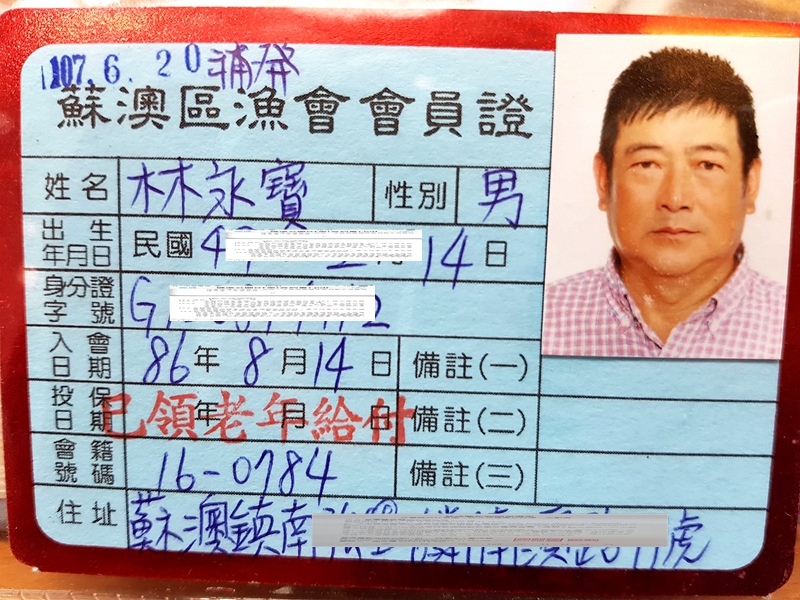 107.6.20補發
蘇澳區漁會會員證
姓名 林永寶 性別 男
出生年月日 民國 14日
身分證字號 G
入會日期 86年8月14日 備註(一)
投保日期 年 月 日 備註(二)
已領老年給付
會籍號碼 16-0784 備註(三)
住址 蘇澳鎮南